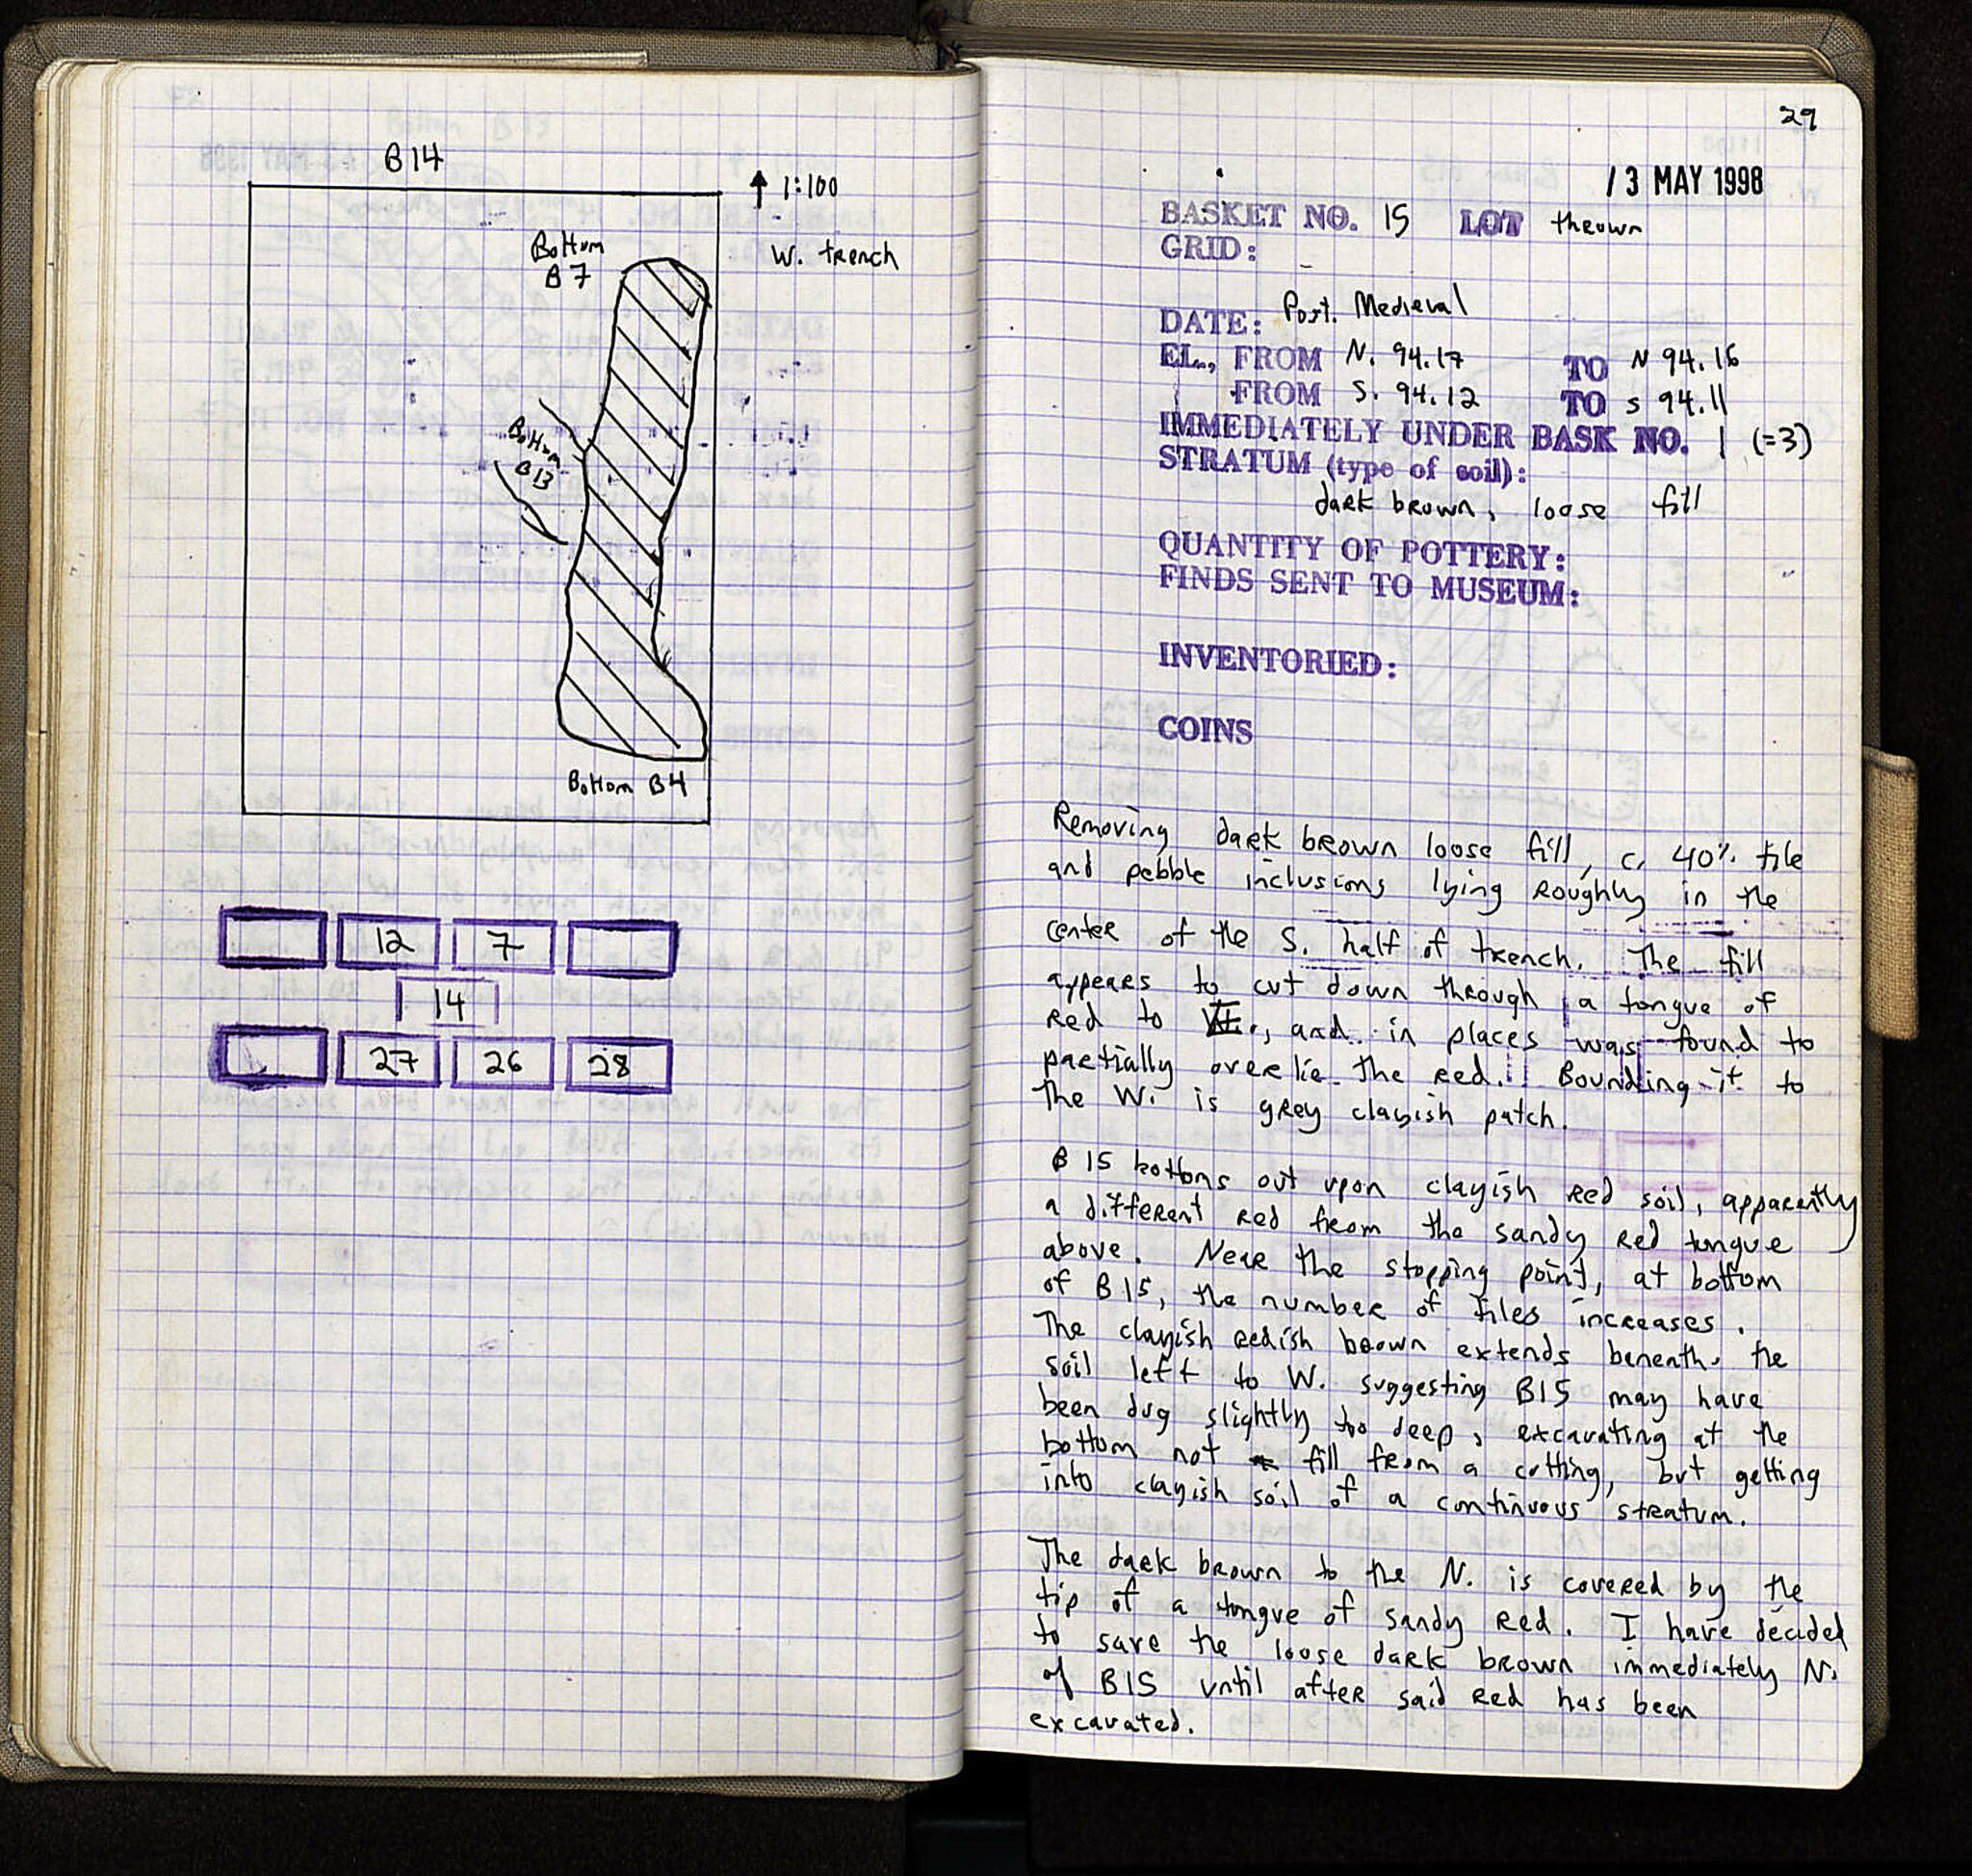 B14
1:100
W. trench
Bottom
B7
Bottom
B13
Bottom B4
12 7
14
27 26 28
29
13 MAY 1998
BASKET NO. 15 LOT thrown
GRID: -
DATE: Post. Medieval
EL., FROM N. 94.17 TO N 94.16
FROM S. 94.12 TO S 94.11
IMMEDIATELY UNDER BASK NO. 1 (=3)
STRATUM (type of soil):
dark brown, loose fill
QUANTITY OF POTTERY:
FINDS SENT TO MUSEUM:
INVENTORIED:
COINS
Removing dark brown loose fill, c. 40% tile
and pebble inclusions lying roughly in the
center of the S. half of trench. The fill
appears to cut down through a tongue of
red to, and in places was found to
partially overlie the red. Bounding it to
the W. is grey clayish patch.
B 15 bottoms out upon clayish red soil, apparently
a different red from the sandy red tongue
above. Near the stopping point, at bottom
of B15, the number of tiles increases.
The clayish redish brown extends beneath the
soil left to W. suggesting B15 may have
been dug slightly too deep, excavating at the
bottom not fill from a cutting, but getting
into clayish soil of a continuous stratum.
The dark brown to the N. is covered by the
tip of a tongue of sandy red. I have decided
to save the loose dark brown immediately N.
of B15 until after said red has been
excavated.